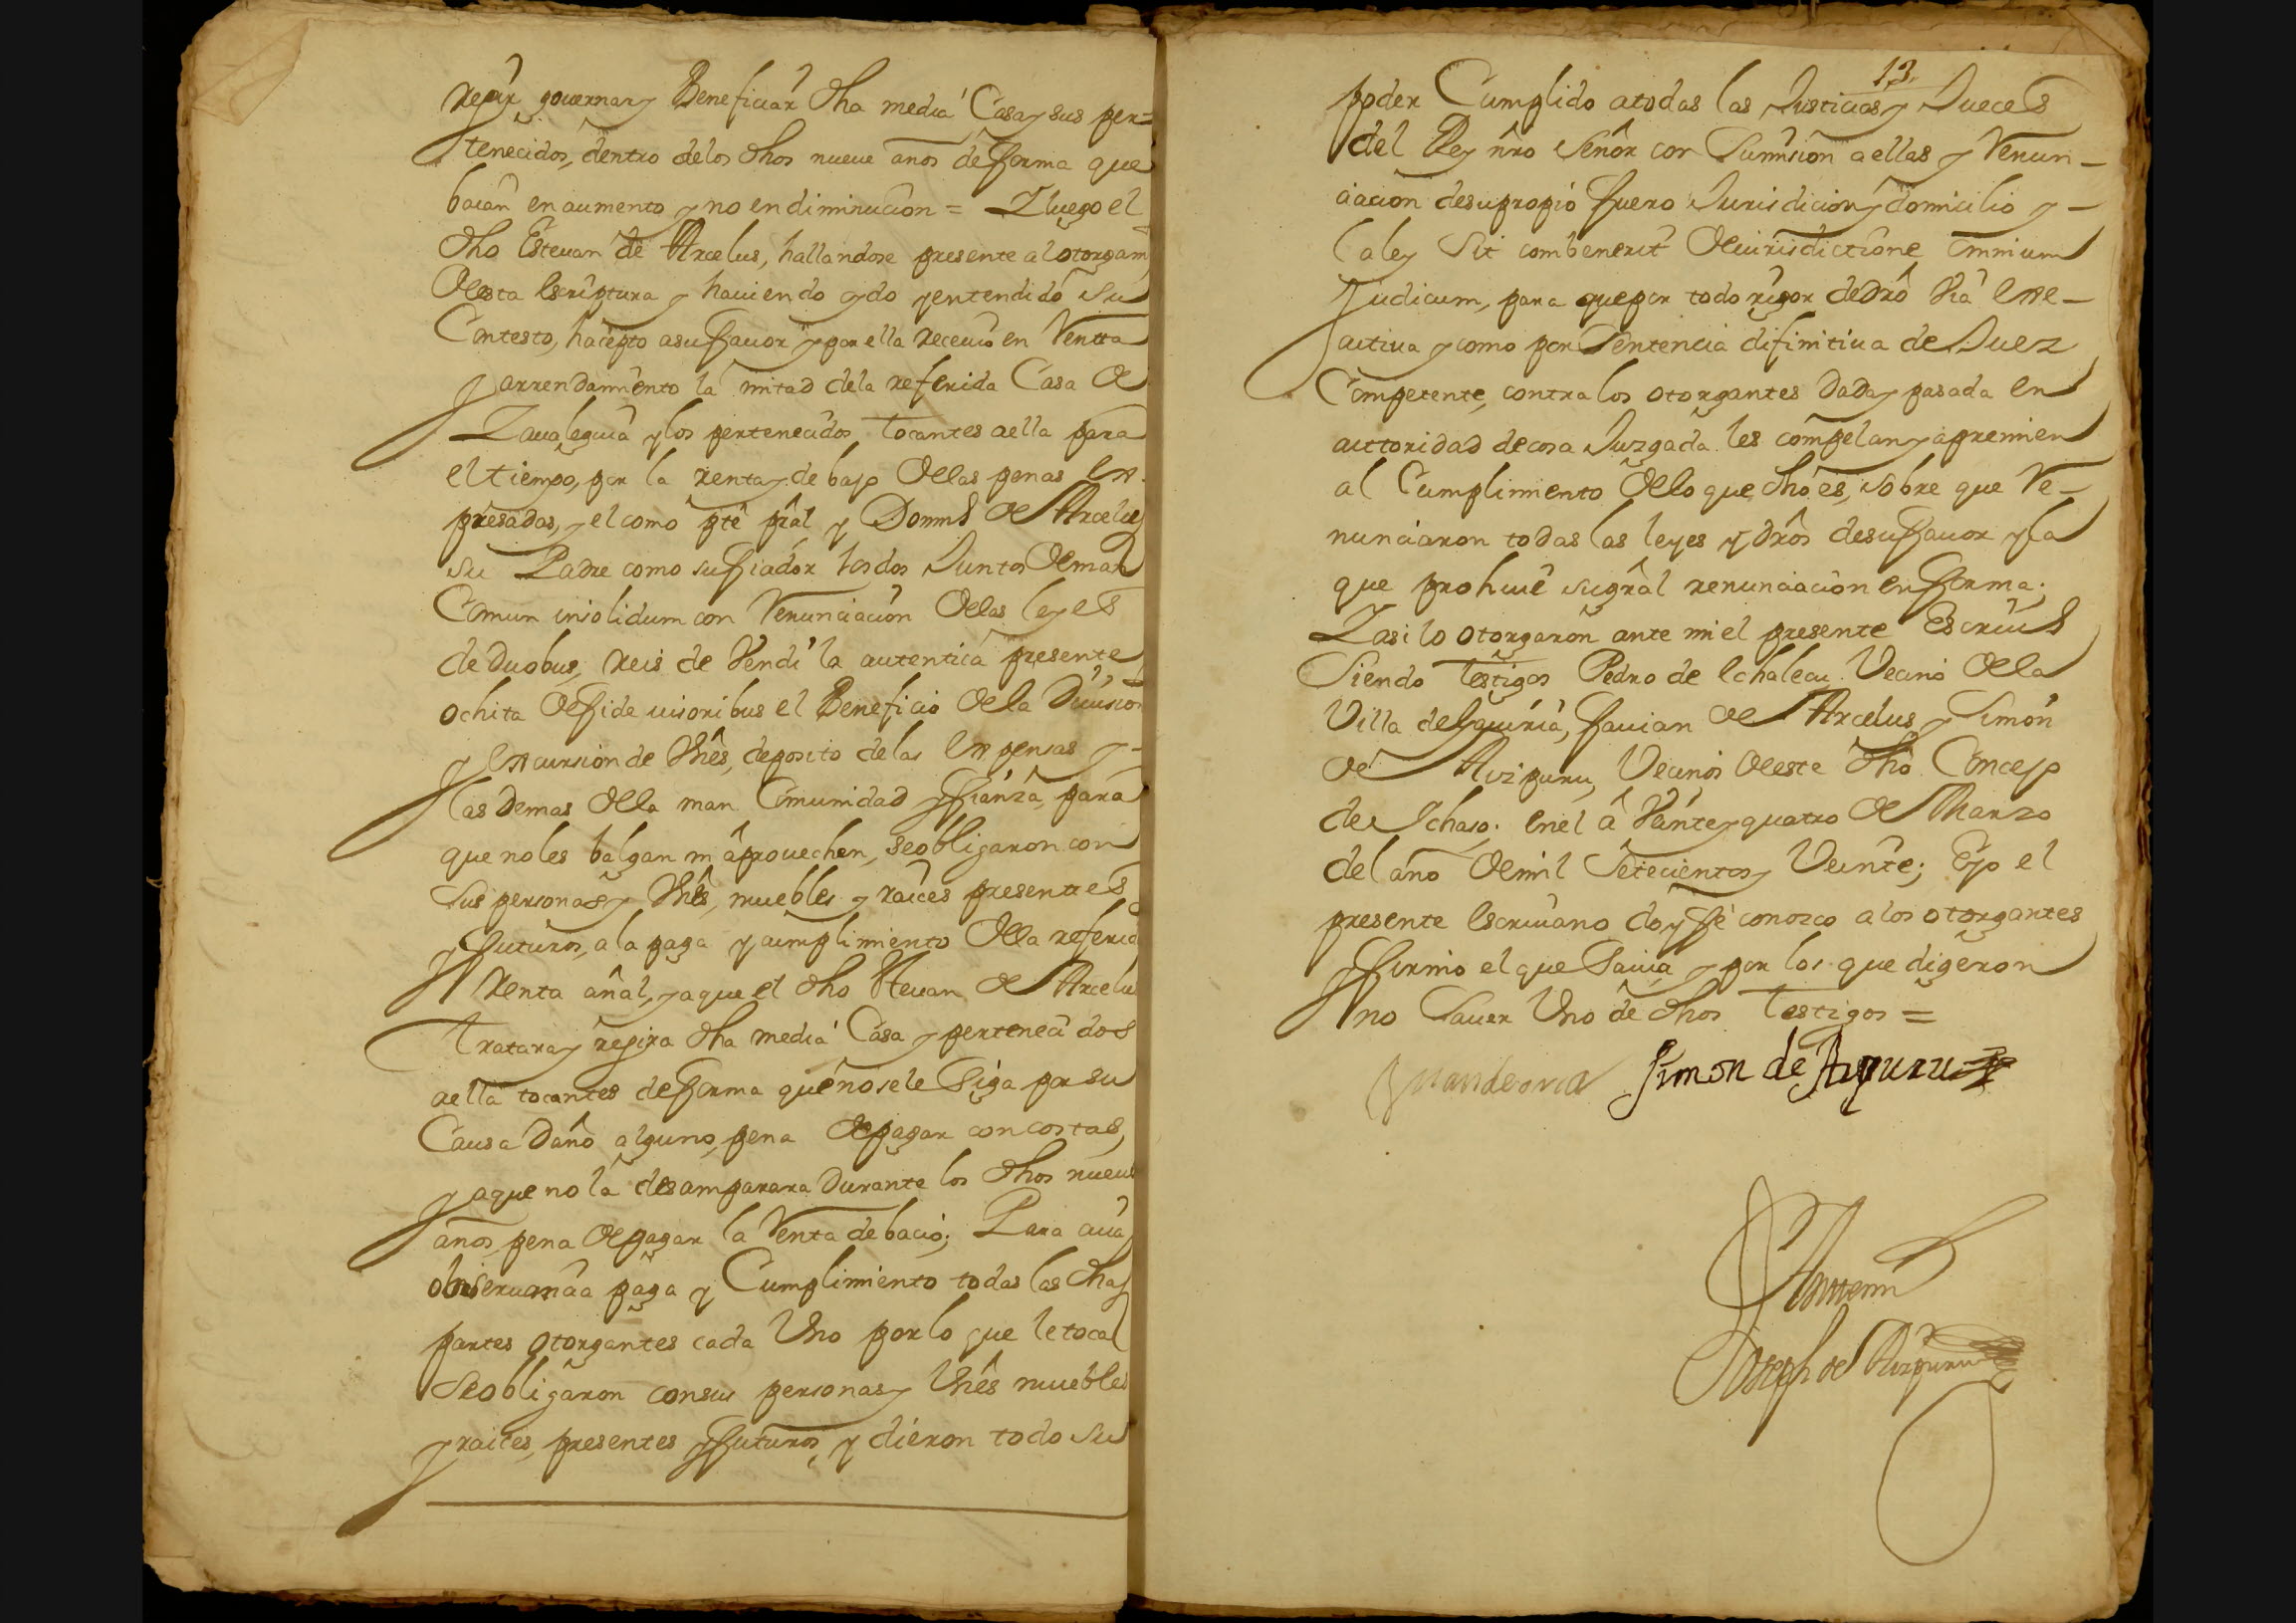 rejir governar y Beneficiar dha media Casa y sus per=
tenecidos, dentro delos dhos nueve años de forma que
baian en aumento y no en diminucion = Y luego el
dho Estevan de Arcelus, hallandose presente al otorgam
desta escriptura y haviendo oydo y entendido su
Contesto, hacepto asu favor y por ella recevio en Rentta
y arrendamiento la mitad dela referida Casa de
Zavaleguia y los pertenecidos tocantes aella para
el tiempo, por la renta y de bajo dellas penas ex
presadas, y el como pte pral y Doms de Arcelus
su Padre como su fiador los dos Juntos deman
Comun insolidum con Renunciacion delas leyes
de Duobus, reis de Vendi la autentica presente
ochita de fide iusoribus el Beneficio dela Division
y excursion de vnes, deposito delas expensas y -
las demas dela man Comunidad y fianza, para
que noles balgan ni aprovechen, se obligaron con
sus personas y vnes, muebles y raices presenttes
y futuros, ala paga y cumplimiento dela referida
renta añal, y aque el dho Stevan de Arcelus
tratara y rejira dha media Casa y pertenecidos
aella tocantes de forma que no se le Siga por su
Causa Daño alguno, pena de pagar con costas,
y aque no la desamparara Durante los dhos nueve
años, pena de pagar la Renta de bacio; Para cuia
observancia paga y Cumplimiento todas las dhas
partes otorgantes cada Uno por lo que le toca
se obligaron con sus personas y Vnes muebles
y raices, presentes y futuros, y dieron todo su
13
poder Cumplido atodas las Justicias y Jueces
del Rey nro Señor con Sumision aellas y Renun-
ciacion de su propio fuero Jurisdicion y domicilio y -
la ley Sit combenerit de iurisdictione omnium
Judicum, para que por todo rigor de Dro Via exe-
cutiva y como por Sentencia difinitiva de Juez
Competente, contra los otorgantes Dada y pasada en
auttoridad de cosa Juzgada les compelan y apremien
al Cumplimiento dello que dho es, sobre que Re-
nunciaron todas las leyes y dros de su favor y la
que prohive su gral renunciacion en forma;
Y asi lo otorgaron ante mi el presente Escrivs
Siendo testigos Pedro de Echalecu Vecino dela
Villa de Eguiria, favian de Arcelus y Simon
de Aizpuru, Vecinos deeste dho Concejo
de Ichaso; en el â Veinte y quatro de Marzo
del año de mil Setecientos y Veinte; Eyo el
presente escrivano doy fe conozco alos otorgantes
y firmo el que Savia y por los que digeron
no Saver Uno de dhos testigos =
Simon de Aizpuru
Anttemi
Joseph de Aizpuru